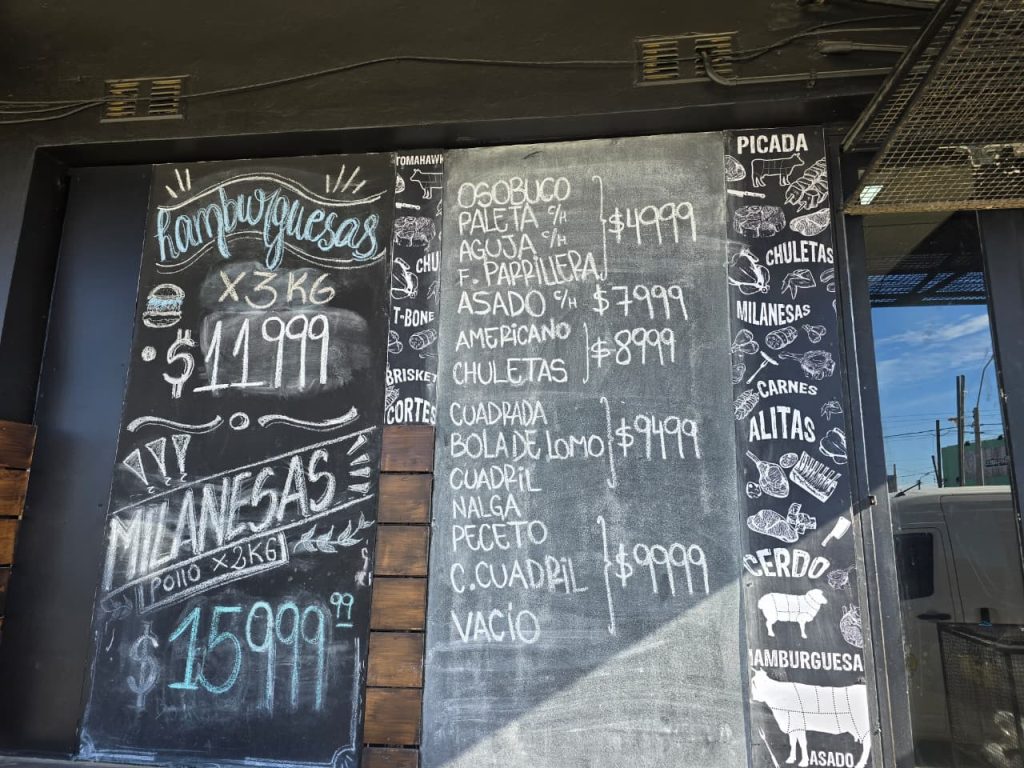 hamburguesas
x3KG
$11999
MILANESAS
POLLO x2KG
$15999 99
TOMAHAWK
CHU
T-BONE
BRISKET
CORTES
OSOBUCO
PALETA c/H
AGUJA c/H
F. PARRILLERA
$4999
ASADO c/H $7999
AMERICANO
CHULETAS
$8999
CUADRADA
BOLA DE LOMO
CUADRIL
$9499
NALGA
PECETO
C.CUADRIL
VACÍO
$9999
PICADA
CHULETAS
MILANESAS
CARNES
ALITAS
CERDO
HAMBURGUESA
ASADO